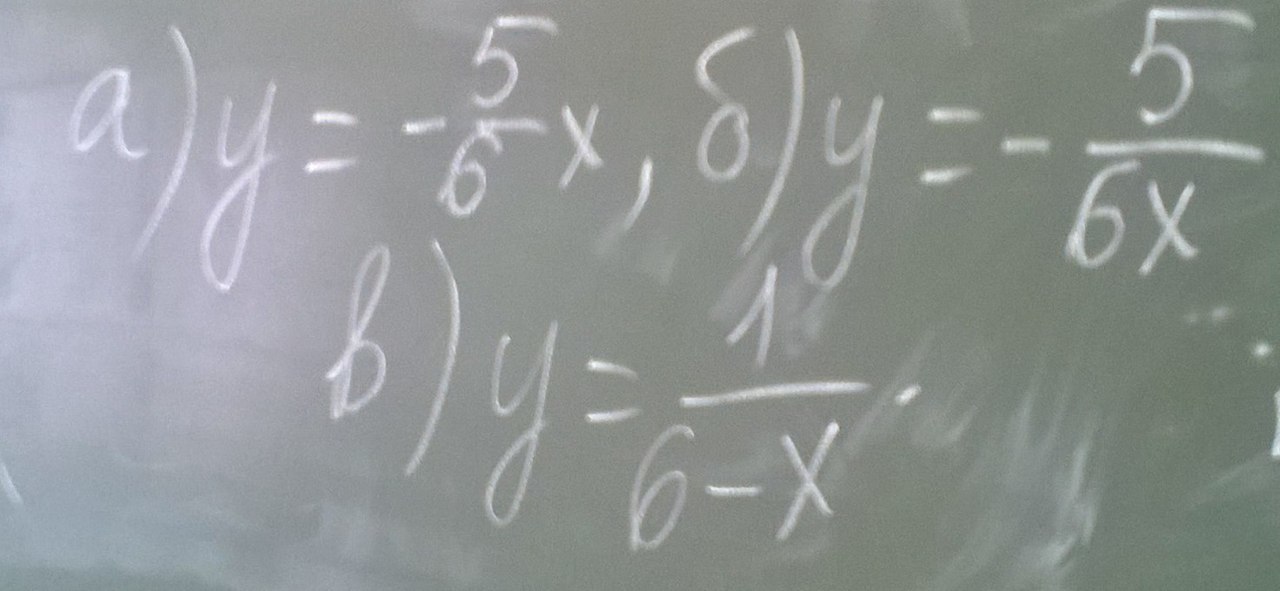 а) y = -5/6 x, б) y = -5/6x
в) y = 1/6-x.